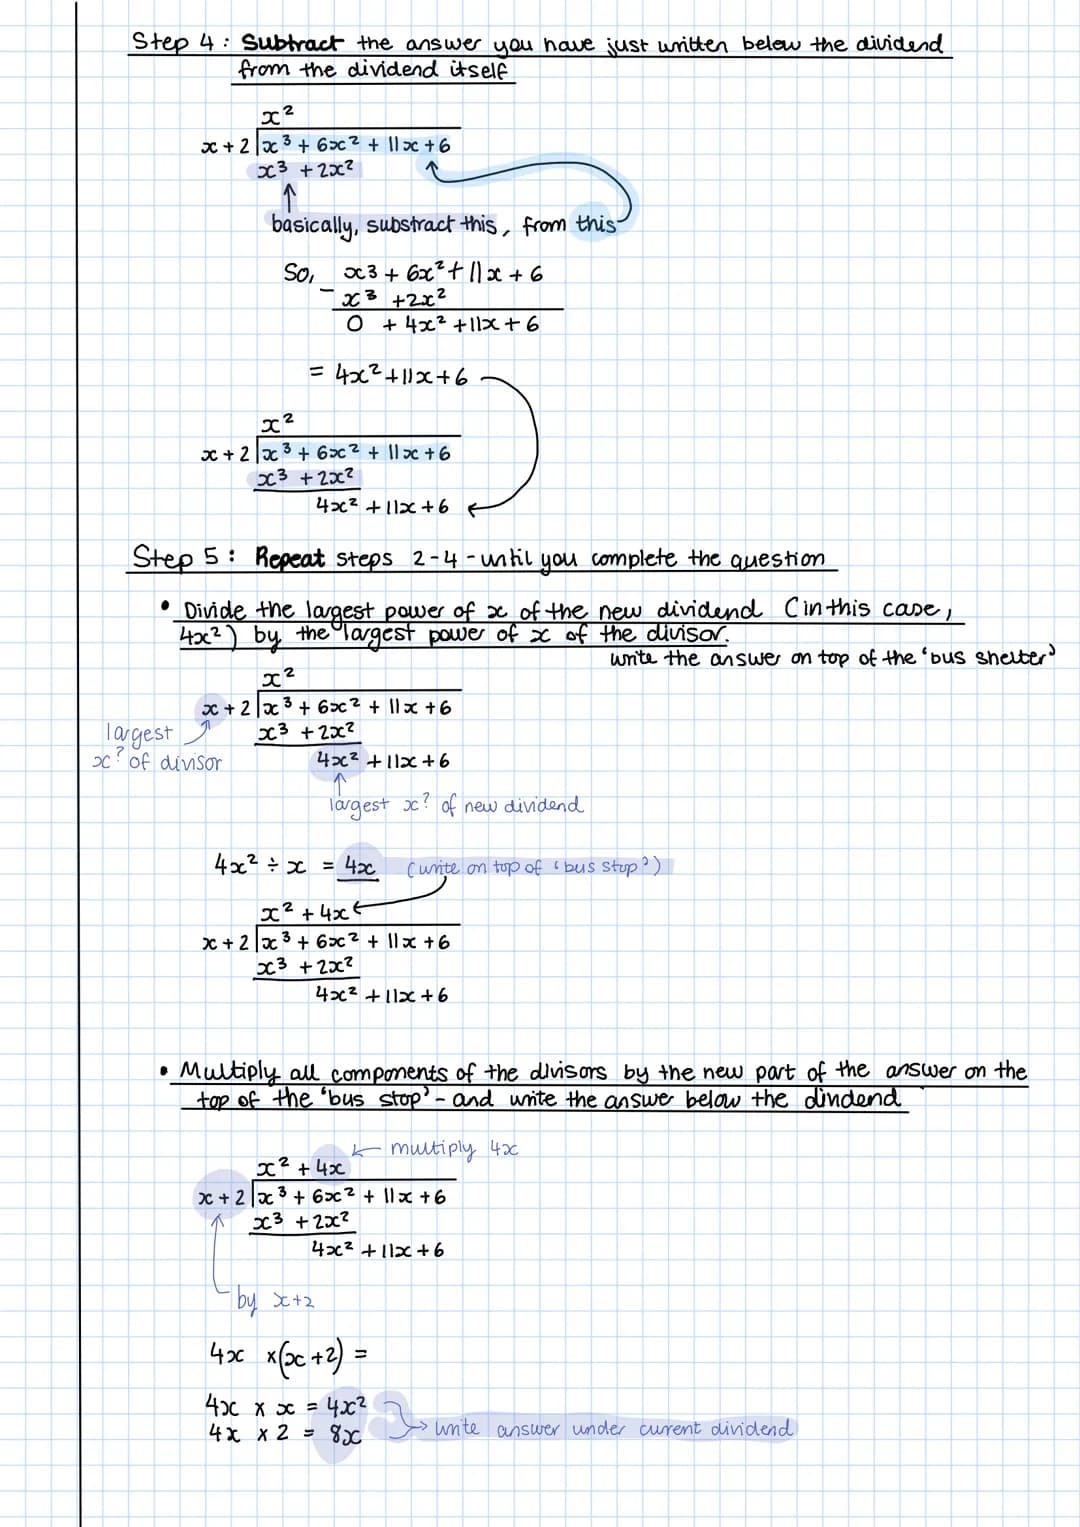 Step 4: Subtract the answer you have just written below the dividend
from the dividend itself
x²
x + 2 | x³ + 6x² + 11x + 6
x³ + 2x²
↑
basically, substract this, from this
So, x3 + 6x² + 11x + 6
- x³ + 2x²
0 + 4x² + 11x + 6
= 4x² + 11x + 6
x²
x + 2 | x³ + 6x² + 11x + 6
x³ + 2x²
4x² + 11x + 6
Step 5: Repeat steps 2-4 - until you complete the question
• Divide the largest power of x of the new dividend (in this case,
4x²) by the largest power of x of the divisor.
write the answer on top of the 'bus shelter'
x²
x + 2 | x³ + 6x² + 11x + 6
largest
x³ + 2x²
x? of divisor
4x² + 11x + 6
↑
largest x? of new dividend
4x² ÷ x = 4x (write on top of 'bus stop')
x² + 4x
x + 2 | x³ + 6x² + 11x + 6
x³ + 2x²
4x² + 11x + 6
• Multiply all components of the divisors by the new part of the answer on the
top of the 'bus stop' - and write the answer below the dividend
← multiply 4x
x² + 4x
x + 2 | x³ + 6x² + 11x + 6
x³ + 2x²
4x² + 11x + 6
by x+2
4x ×(x+2) =
4x × x = 4x²
4x × 2 = 8x → write answer under current dividend